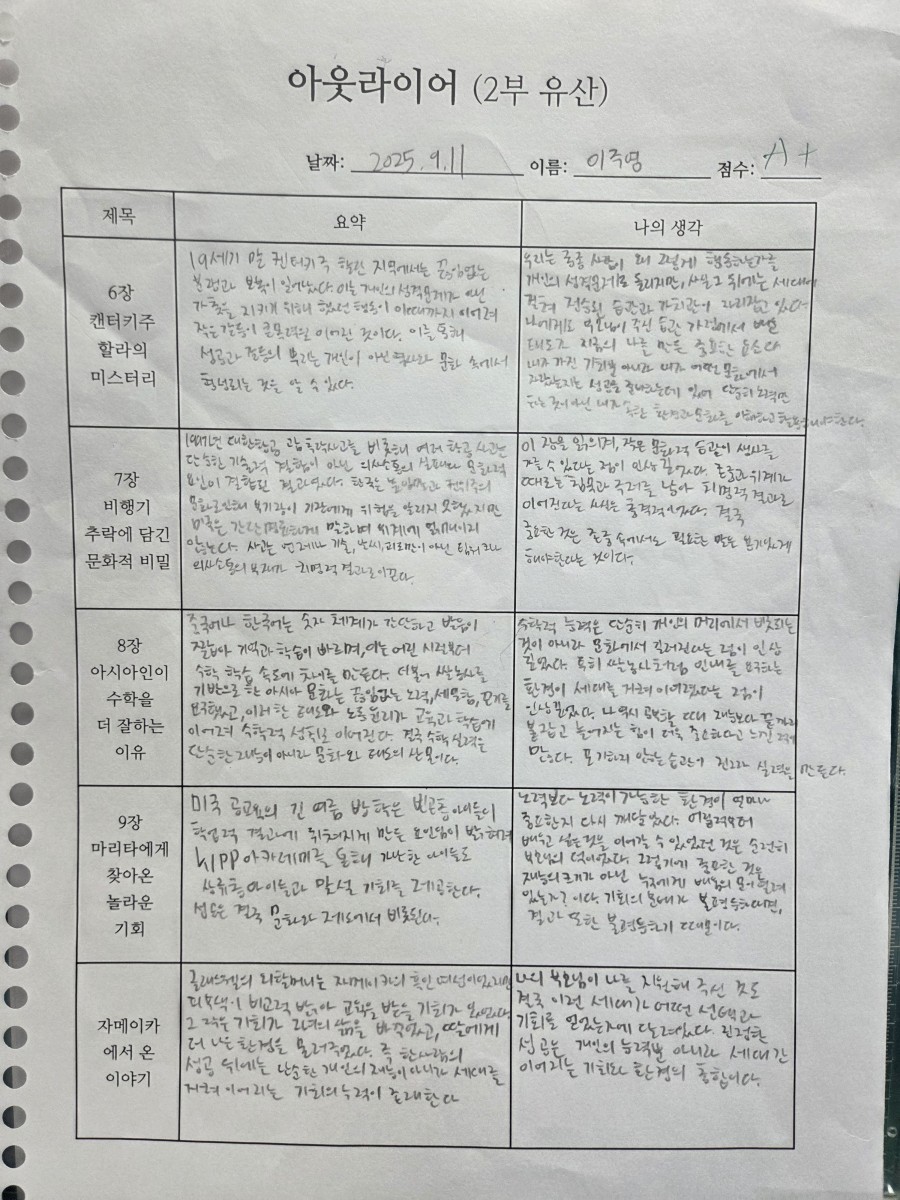 아웃라이어 (2부 유산)
날짜: 2025.9.11 이름: 이주영 점수: A+
제목 요약 나의 생각
6장
캔터키주
할라의
미스터리
19세기 말 켄터키주 할란 지역에서는 끊임없는
분쟁과 보복이 일어났다. 이는 개인의 성격문제가 아닌
가족을 지키기 위해 했던 행동이 이때까지 이어져
작은 갈등이 큰 폭력으로 이어진 것이다. 이를 통해
성공과 갈등의 뿌리는 개인이 아닌 역사와 문화 속에서
형성되는 것을 알 수 있다.
우리는 종종 사람이 왜 그렇게 행동하는가를
개인의 성격문제로 돌리지만, 사실 그 뒤에는 세대에
걸쳐 전승된 습관과 가치관이 자리잡고 있다.
나에게도 부모님이 주신 습관 가정에서 배운
태도가 지금의 나를 만든 중요한 요소다
내가 가진 기회뿐 아니라 내가 어떤 문화에서
자랐는지는 성공을 줄 있어 단순히 노력만
되는 것이 아닌 내가 속한 환경과 문화를 이해하고 활용해야 한다.
7장
비행기
추락에 담긴
문화적 비밀
1997년 대한항공 괌 추락사고를 비롯해 여러 항공 사고는
단순한 기술적 결함이 아닌 의사소통의 실패와 문화적
요인이 결합된 결과였다. 한국은 높임말과 권위주의
문화로 인해 부기장이 기장에게 위험을 알리지 못했지만
미국은 간단명료하게 말하며 위계에 얽매이지
않는다. 사고는 언제나 기술, 날씨, 피로만이 아닌 팀워크나
의사소통의 부재가 치명적 결과로 이끈다.
이 장을 읽으며, 작은 문화적 습관이 생사를
가를 수 있다는 점이 인상 깊었다. 존중과 위계가
때로는 침묵과 주저를 낳아 치명적 결과로
이어진다는 사실은 충격적이었다. 결국
중요한 것은 존중 속에서도 필요한 말은 용기있게
해야한다는 것이다.
8장
아시아인이
수학을
더 잘하는
이유
중국어나 한국어는 숫자 체계가 간단하고 발음이
짧아 기억과 학습이 빠르며, 이는 어린 시절부터
수학 학습 속도에 차이를 만든다. 더불어 쌀농사를
기반으로 한 아시아 문화는 끊임없는 노력, 세밀함, 끈기를
요구했고, 이러한 태도와 노동윤리가 교육과 학습에
이어져 수학적 성취로 이어진다. 결국 수학 실력은
단순한 재능이 아니라 문화와 태도의 산물이다.
수학적 능력은 단순히 개인의 머리에서 비롯되는
것이 아니라 문화에서 길러진다는 점이 인상
깊었다. 특히 쌀농사처럼 인내를 요구하는
환경이 세대를 거쳐 이어졌다는 점이
인상깊었다. 나 역시 공부할 때 재능보다 끝까지
붙잡고 늘어지는 힘이 더욱 중요하다고 느낀 적이
많다. 포기하지 않는 습관이 진짜 실력을 만든다.
9장
마리타에게
찾아온
놀라운
기회
미국 공교육의 긴 여름 방학은 빈곤층 아이들이
학업적 결과에 뒤쳐지게 만든 요인임이 밝혀져
KIPP아카데미를 통해 가난한 아이들도
상류층 아이들과 기회를 제공한다.
성공은 결국 문화와 제도에서 비롯된다.
노력보다 노력이 가능한 환경이 얼마나
중요한지 다시 깨달았다. 어릴적부터
배우고 싶은 것을 이어갈 수 있었던 것은 순전히
부모님의 덕이었다. 그렇기에 중요한 것은
재능의 크기가 아닌 누구에게 배움의 문이 열려
있는가? 이다. 기회의 분배가 불평등하다면,
결과 또한 불평등하기 때문이다.
자메이카
에서 온
이야기
글래드웰의 외할머니는 자메이카의 흑인 여성이었지만
피부색이 비교적 밝아 교육을 받을 기회가 있었다.
그 작은 기회가 그녀의 삶을 바꾸었고, 딸에게
더 나은 환경을 물려주었다. 즉 한사람의
성공 뒤에는 단순한 개인의 재능이 아니라 세대를
거쳐 이어지는 기회와 노력이 존재한다
나의 부모님이 나를 지원해 주신 것도
결국 이전 세대가 어떤 선택과
기회를 얻었는지에 달려있다. 진정한
성공은 개인의 능력뿐 아니라 세대간
이어지는 기회와 환경의 총합이다.